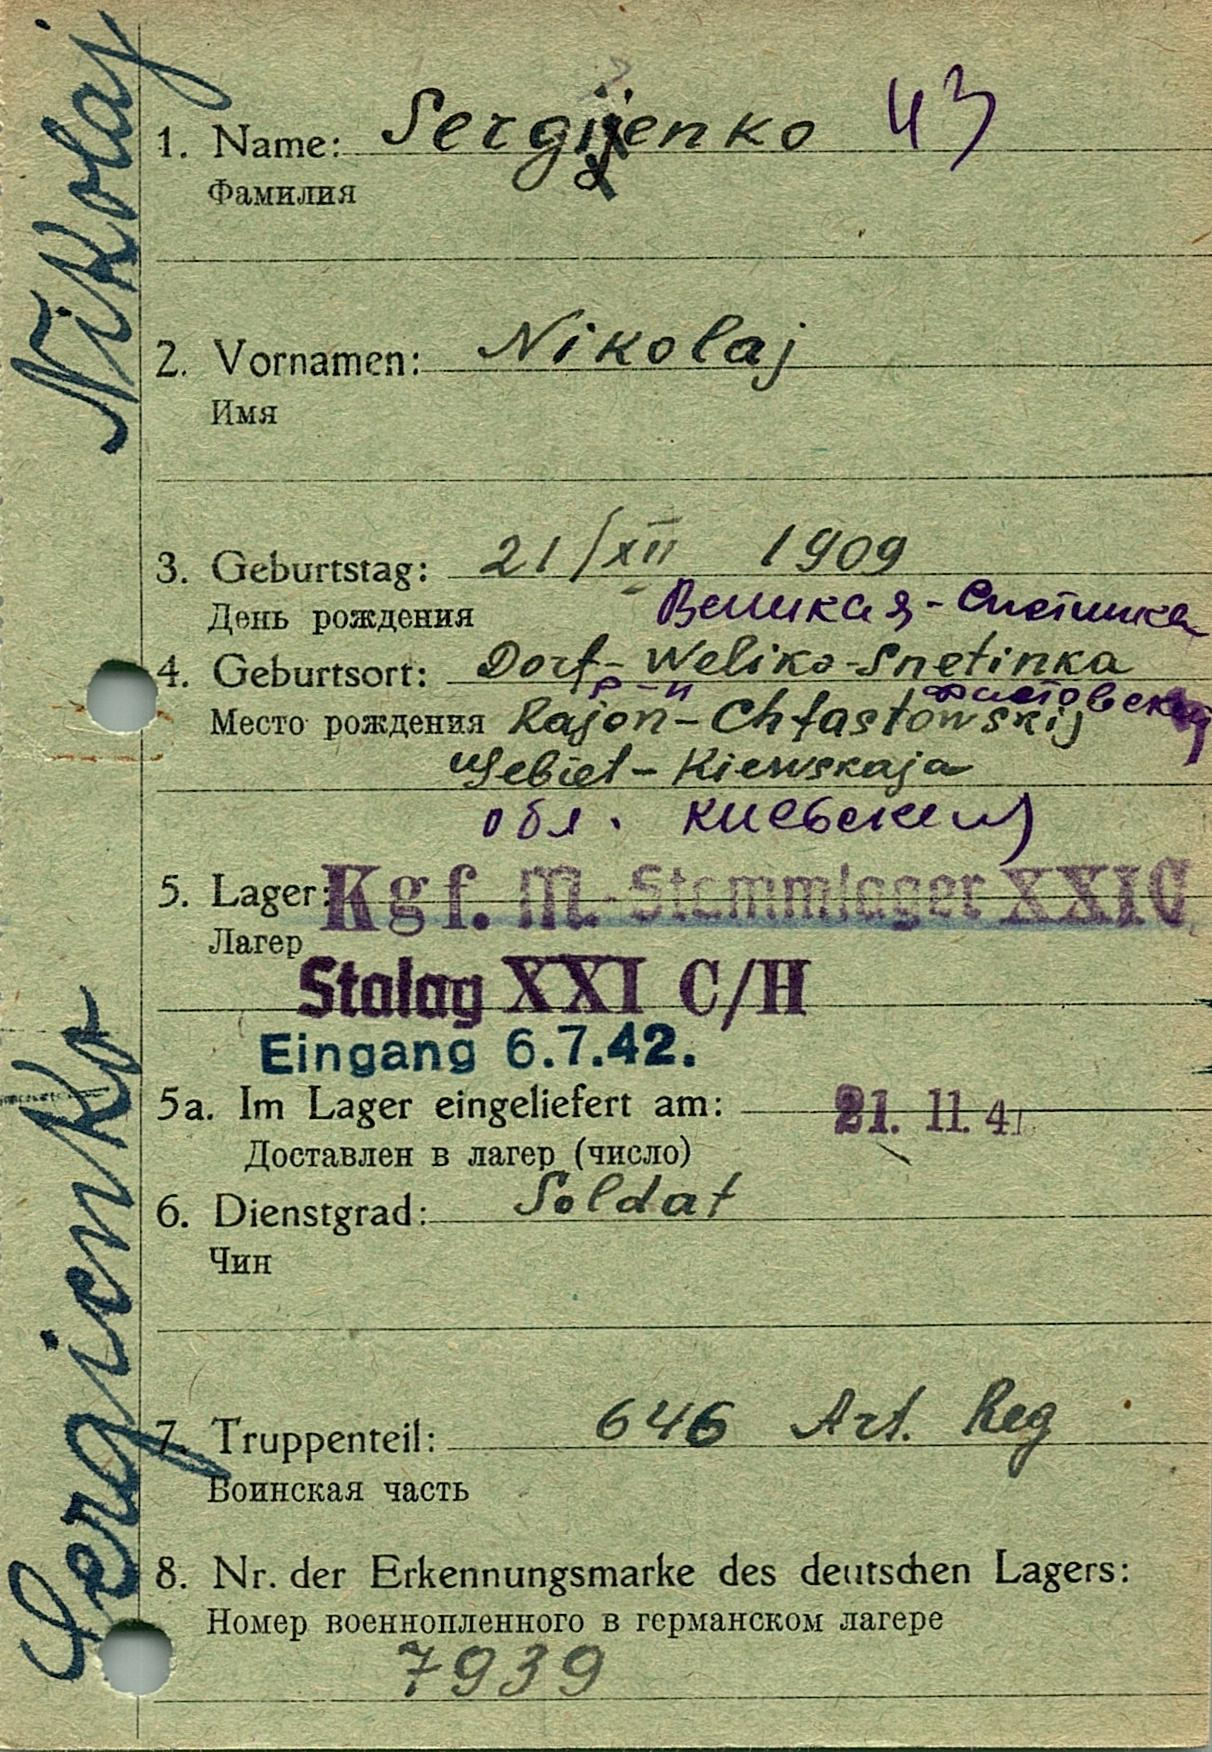 Nikolaj
Sergienko
1. Name: Sergienko 43
Фамилия
2. Vornamen: Nikolaj
Имя
3. Geburtstag: 21/XII 1909
День рождения
Великая-Снетинка
4. Geburtsort: Dorf-Weliko-Snetinka
р-н Фастовский
Место рождения Rajon-Chfastowskij
Gebiet-Kiewskaja
обл. киевская
5. Lager: Kgf. M.-Stammlager XXI C
Лагер
Stalag XXI C/H
Eingang 6.7.42.
5a. Im Lager eingeliefert am: 21. 11. 4
Доставлен в лагер (число)
6. Dienstgrad: Soldat
Чин
7. Truppenteil: 646 Art. Reg
Воинская часть
8. Nr. der Erkennungsmarke des deutschen Lagers:
Номер военнопленного в германском лагере
7939